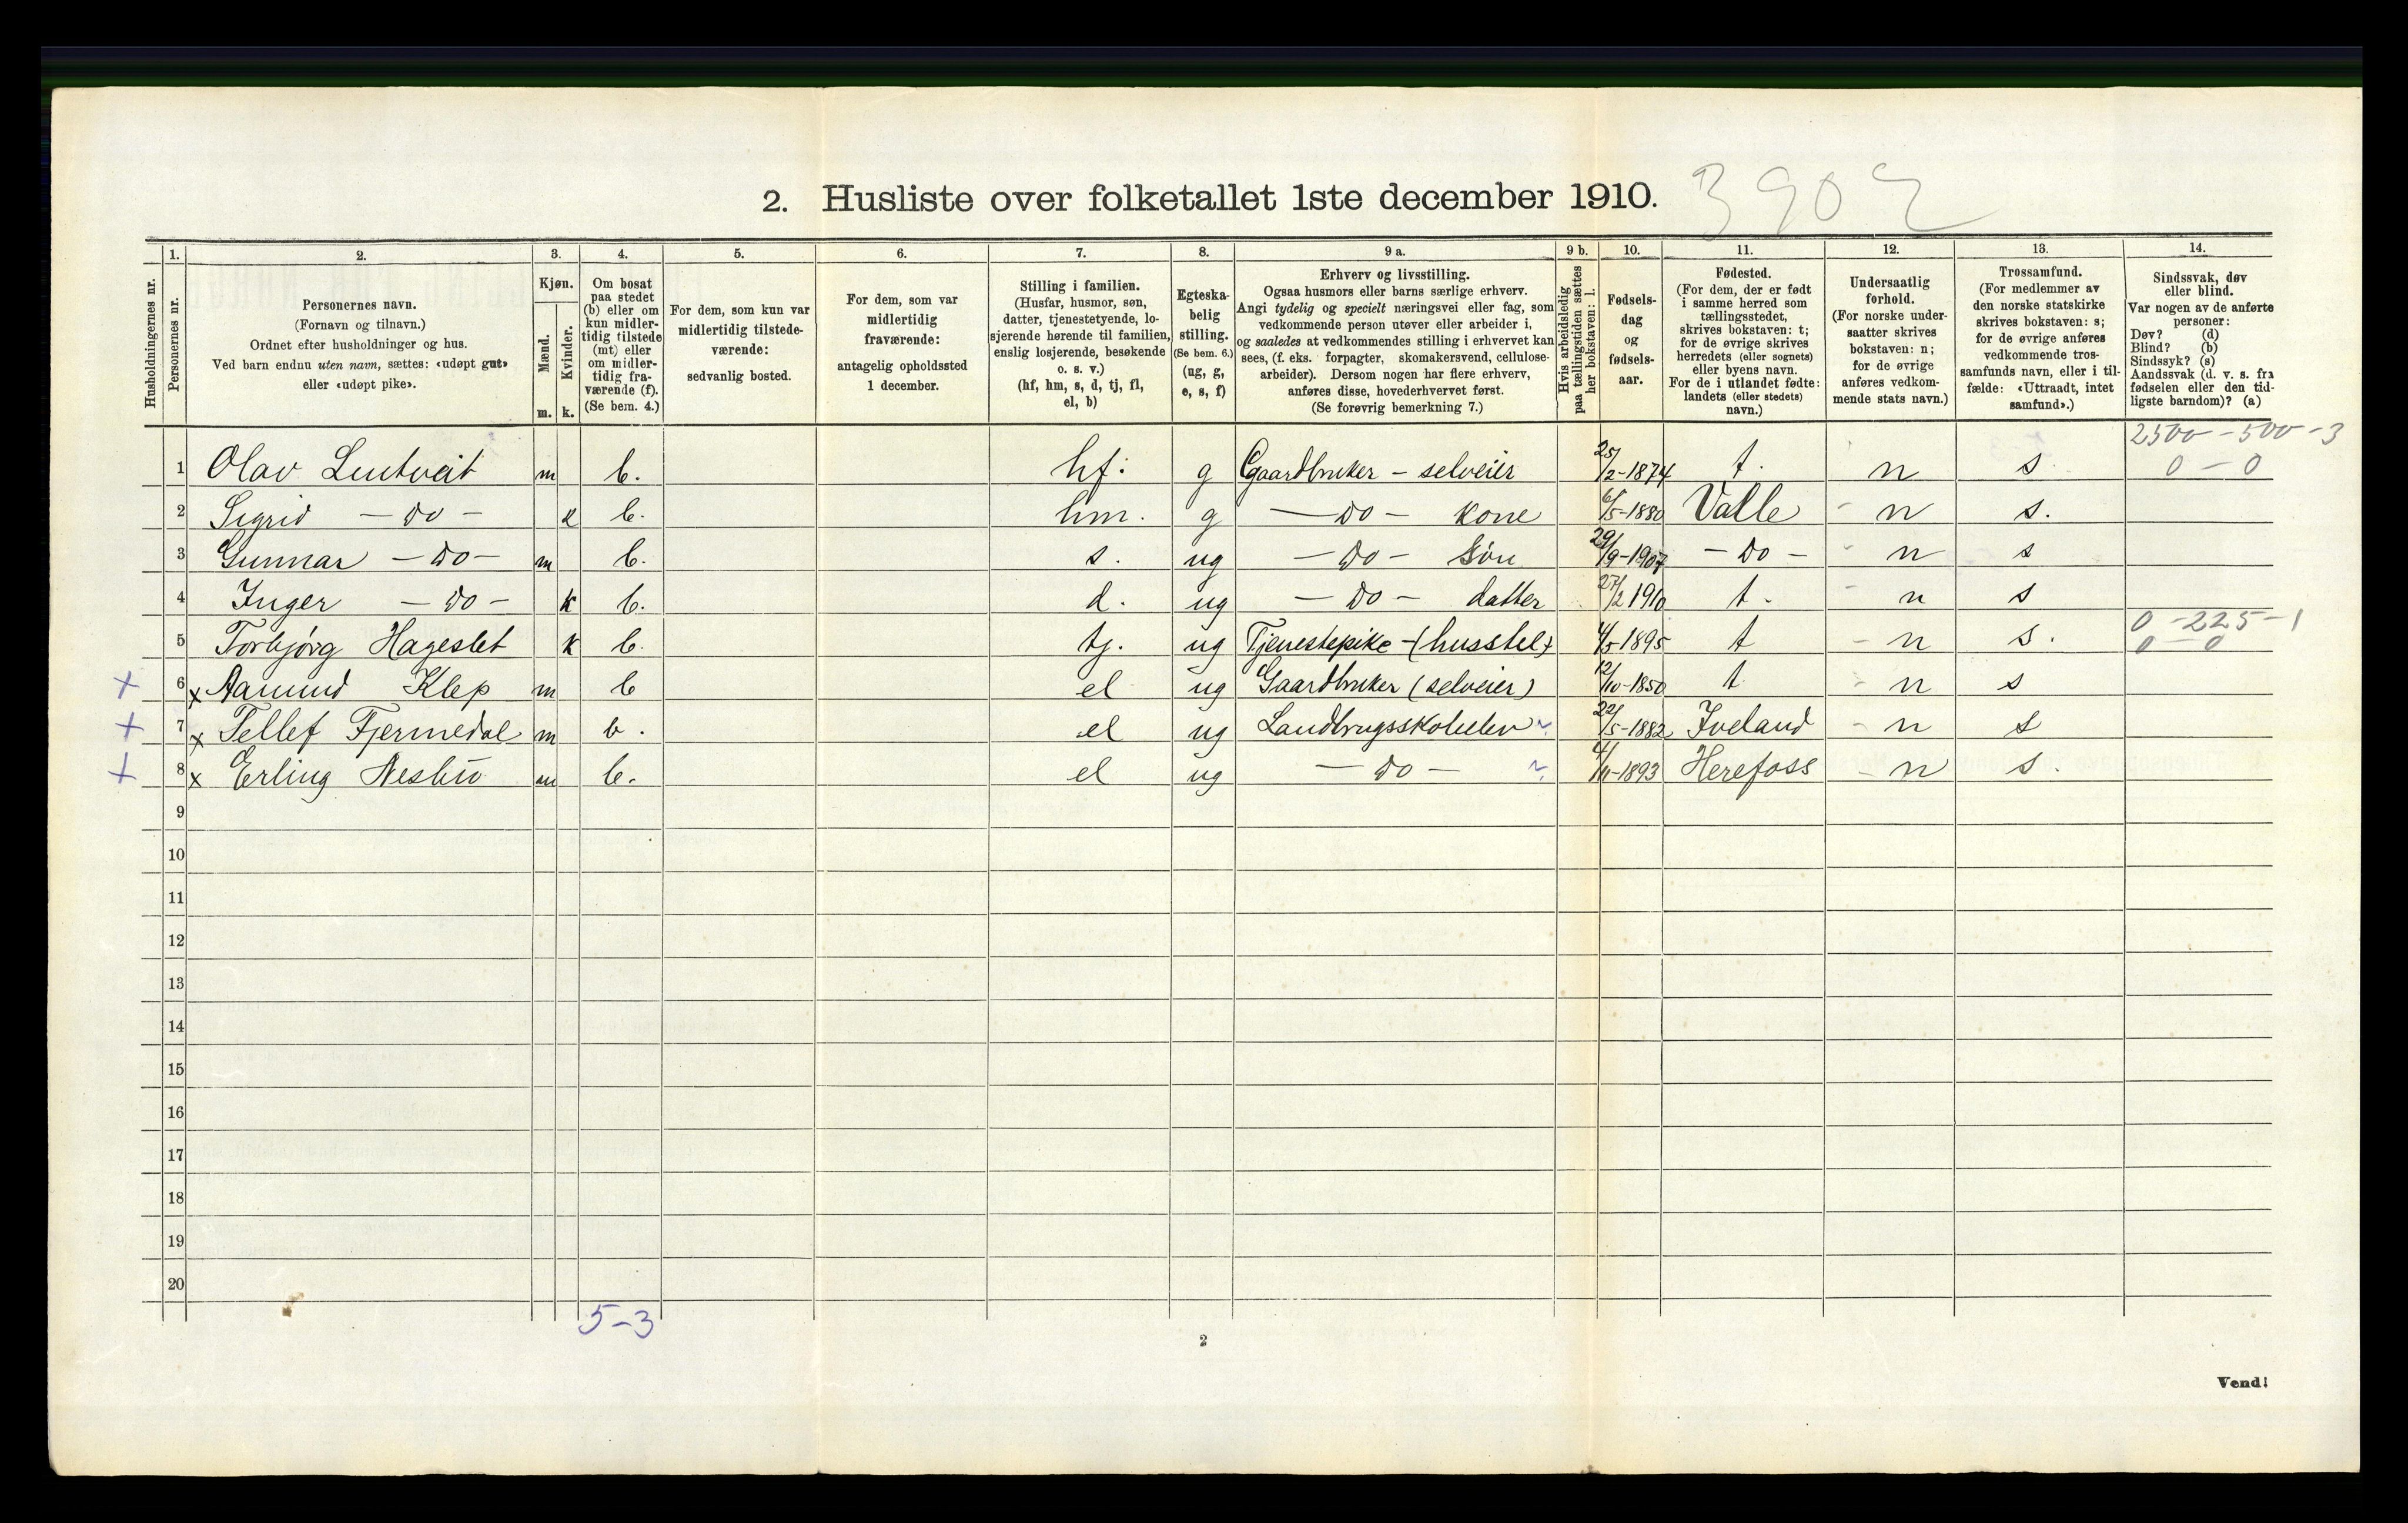 2. Husliste over folketallet 1ste december 1910. 3902
Husholdningernes nr.
1. Personernes nr.
2. Personernes navn.
(Fornavn og tilnavn.)
Ordnet efter husholdninger og hus.
Ved barn endnu uten navn, sættes: «udøpt gut»
eller «udøpt pike».
3. Kjøn.
Mænd. m.
Kvinder. k.
4. Om bosat
paa stedet
(b) eller om
kun midler-
tidig tilstede
(mt) eller
om midler-
tidig fra-
værende (f).
(Se bem. 4.)
5. For dem, som kun var
midlertidig tilstede-
værende:
sedvanlig bosted.
6. For dem, som var
midlertidig
fraværende:
antagelig opholdssted
1 december.
7. Stilling i familien.
(Husfar, husmor, søn,
datter, tjenestetyende, lo-
sjerende hørende til familien,
enslig losjerende, besøkende
o. s. v.)
(hf, hm, s, d, tj, fl,
el, b)
8. Egteska-
belig
stilling.
(Se bem. 6.)
(ug, g,
e, s, f)
9 a. Erhverv og livsstilling.
Ogsaa husmors eller barns særlige erhverv.
Angi tydelig og specielt næringsvei eller fag, som
vedkommende person utøver eller arbeider i,
og saaledes at vedkommendes stilling i erhvervet kan
sees, (f. eks. forpagter, skomakersvend, cellulose-
arbeider). Dersom nogen har flere erhverv,
anføres disse, hovederhvervet først.
(Se forøvrig bemerkning 7.)
9 b. Hvis arbeidsledig
paa tællingstiden sættes
her bokstaven: l.
10. Fødsels-
dag
og
fødsels-
aar.
11. Fødested.
(For dem, der er født
i samme herred som
tællingsstedet,
skrives bokstaven: t;
for de øvrige skrives
herredets (eller sognets)
eller byens navn.
For de i utlandet fødte:
landets (eller stedets)
navn.)
12. Undersaatlig
forhold.
(For norske under-
saatter skrives
bokstaven: n;
for de øvrige
anføres vedkom-
mende stats navn.)
13. Trossamfund.
(For medlemmer av
den norske statskirke
skrives bokstaven: s;
for de øvrige anføres
vedkommende tros-
samfunds navn, eller i til-
fælde: «Uttraadt, intet
samfund».)
14. Sindssvak, døv
eller blind.
Var nogen av de anførte
personer:
Døv? (d)
Blind? (b)
Sindssyk? (s)
Aandssvak (d. v. s. fra
fødselen eller den tid-
ligste barndom)? (a)
2500 - 500 - 3
1 Olav m b. hf: g Gaardbruker - selveier 25/2-1874 t. n s. 0 - 0
2 Sigrid - do - k b. hm. g - do - kone 6/5-1880 Valle n s.
3 Gunnar - do - m b. s. ug - do - søn 29/9-1907 - do - n s
4 Inger - do - k b. d. ug - do - datter 27/2 1910 t. n s
0 - 225 - 1
5 Torbjørg Hageslet k b. tj. ug Tjenestepike - (husstel) 4/5-1895 t n s. 0 - 0
+ 6 x Aamund Klep m b el ug Gaardbruker (selveier) 12/10-1850 t n s
+ 7 x Tellef Fjermedal m b. el ug Landbrugsskoleelev 22/5-1882 Iveland n s
+ 8 x Erling Nesbø m b. el ug - do - 4/11-1893 Herefoss n s.
9
10
11
12
13
14
15
16
17
18
19
20
5-3
2
Vend!